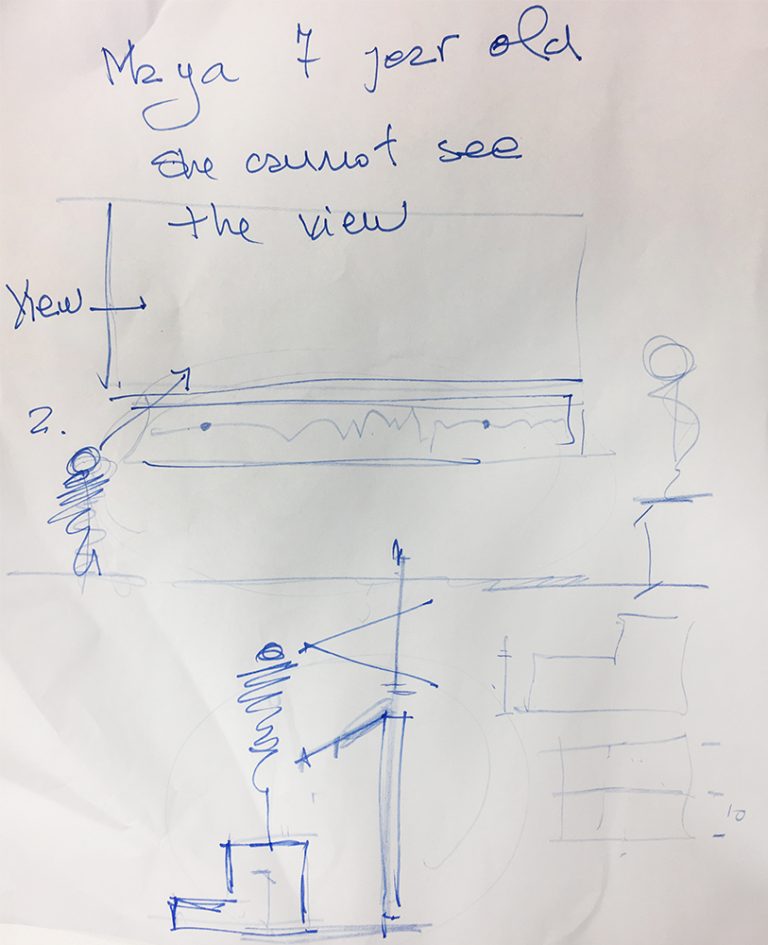 Maya 7 year old
she cannot see
the view
View
2.
10